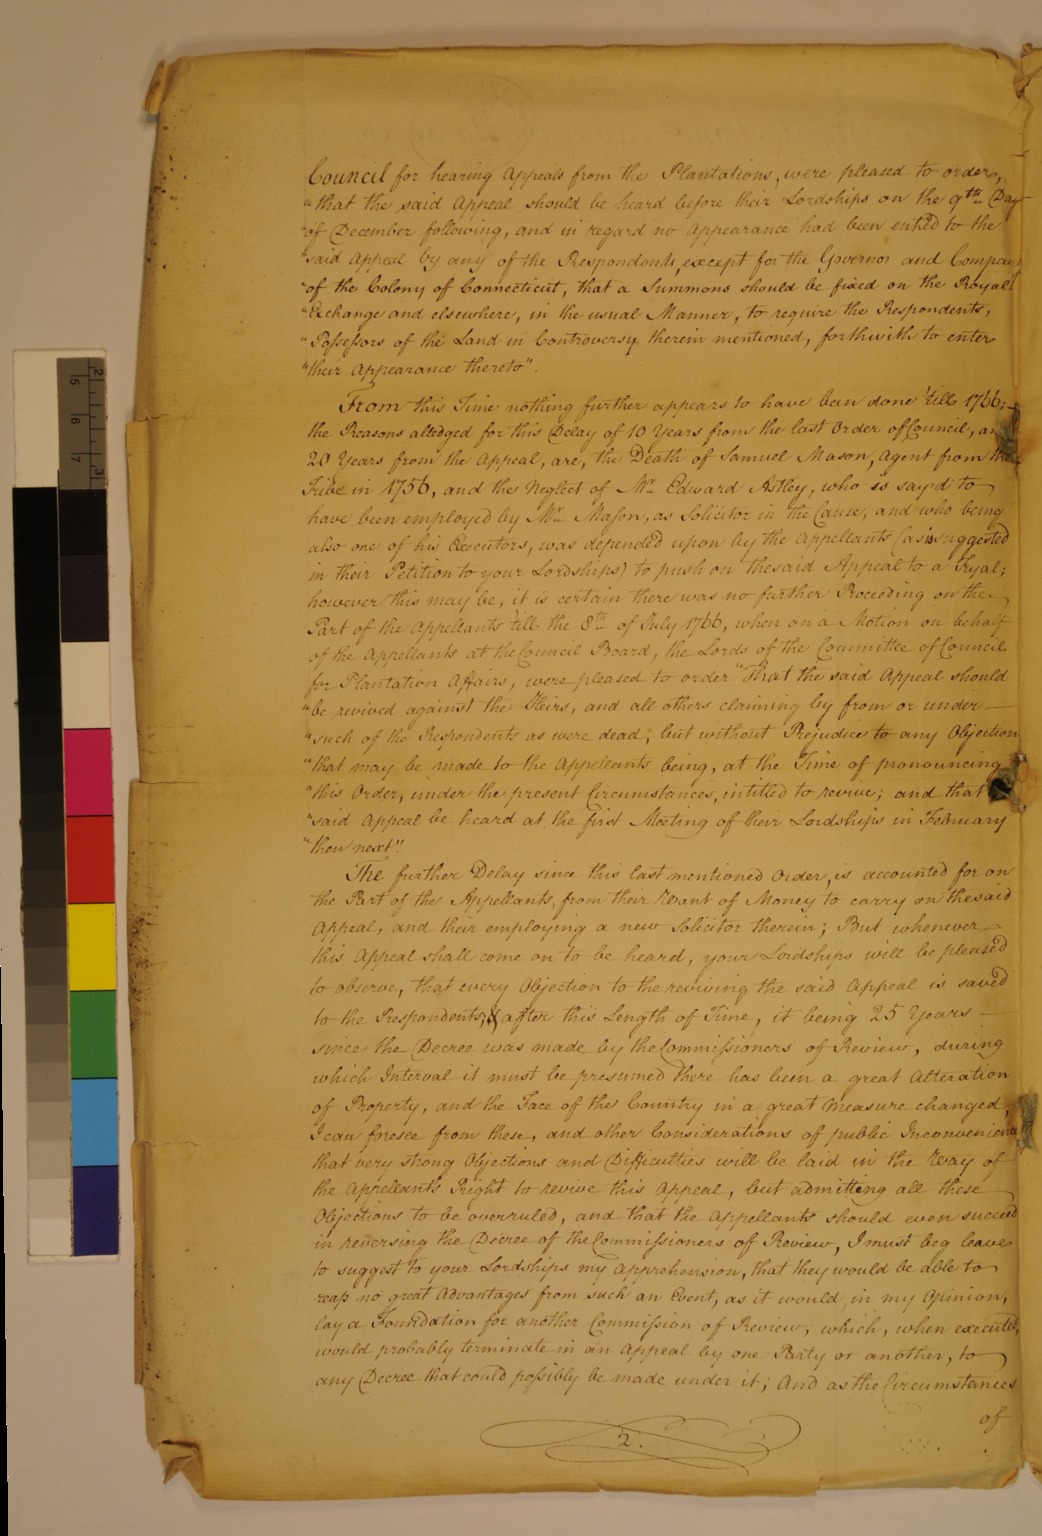 Council for hearing Appeals from the Plantations, were pleased to order,
"that the said Appeal should be heard before their Lordships on the 9th Day
"of December following, and in regard no Appearance had been entred to the
"said Appeal by any of the Respondents, except for the Governor and Company
"of the Colony of Connecticut, that a Summons should be fixed on the Royal
"Exchange and elsewhere, in the usual Manner, to require the Respondents,
"Possessors of the Land in Controversy therein mentioned, forthwith to enter
"their Appearance thereto".
From this Time nothing further appears to have been done 'till 1766;
the Reasons alledged for this Delay of 10 Years from the last Order of Council, and
20 Years from the Appeal, are, the Death of Samuel Mason, Agent from the
Tribe in 1756, and the Neglect of Mr. Edward Astley, who is say'd to
have been employed by Mr. Mason, as Solicitor in the Cause, and who being
also one of his Executors, was depended upon by the Appellants (as is suggested
in their Petition to your Lordships) to push on the said Appeal to a Tryal;
however this may be, it is certain there was no further Proceeding on the
Part of the Appellants 'till the 8th of July 1766, when on a Motion on behalf
of the Appellants at the Council Board, the Lords of the Committee of Council
for Plantation Affairs, were pleased to order "That the said Appeal should
"be revived against the Heirs, and all others claiming by from or under
"such of the Respondents as were dead, but without Prejudice to any Objection
"that may be made to the Appellants being, at the Time of pronouncing
"this Order, under the present Circumstances, intitled to revive; and that
"said Appeal be heard at the first Meeting of their Lordships in February
"then next".
The further Delay since this last mentioned Order, is accounted for on
the Part of the Appellants, from their Want of Money to carry on the said
Appeal, and their employing a new Solicitor therein; But whenever
this Appeal shall come on to be heard, your Lordships will be pleased
to observe, that every Objection to the reviving the said Appeal is saved
to the Respondents; & after this Length of Time, it being 25 Years
since the Decree was made by the Commissioners of Review, during
which Interval it must be presumed there has been a great Alteration
of Property, and the Face of the Country in a great Measure changed,
I can foresee from these, and other Considerations of public Inconvenience
that very strong Objections and Difficulties will be laid in the Way of
the Appellants Right to revive this Appeal, but admitting all these
Objections to be overruled, and that the Appellants should even succeed
in reversing the Decree of the Commissioners of Review, I must beg leave
to suggest to your Lordships my Apprehension, that they would be able to
reap no great Advantages from such an Event, as it would, in my Opinion,
lay a Foundation for another Commission of Review, which, when executed,
would probably terminate in an Appeal by one Party or another, to
any Decree that could possibly be made under it; And as the Circumstances
of
2.